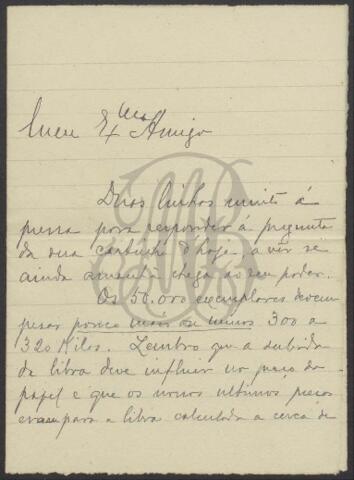 Meu Exmo Amigo
Duas linhas muito á
pressa para responder á pregunta
da sua cartinha d'hoje, a vêr se
ainda amanhã chega ao seu poder.
Os 50.000 exemplares devem
pesar pouco mais ou menos 300 a
320 kilos. Lembro que a subida
da libra deve influir no preço do
papel e que os nossos ultimos preços
eram para a libra calculada a cerca de